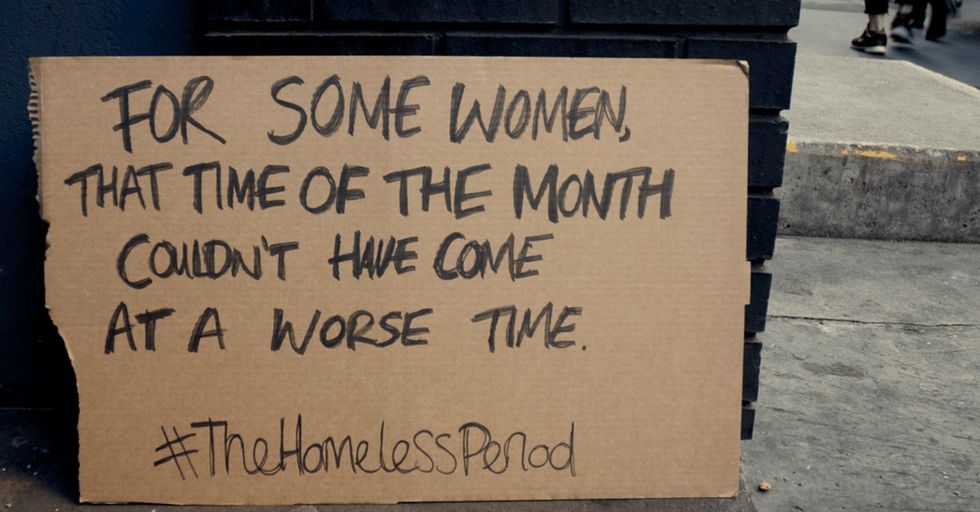 FOR SOME WOMEN,
THAT TIME OF THE MONTH
COULDN'T HAVE COME
AT A WORSE TIME.
#TheHomelessPeriod